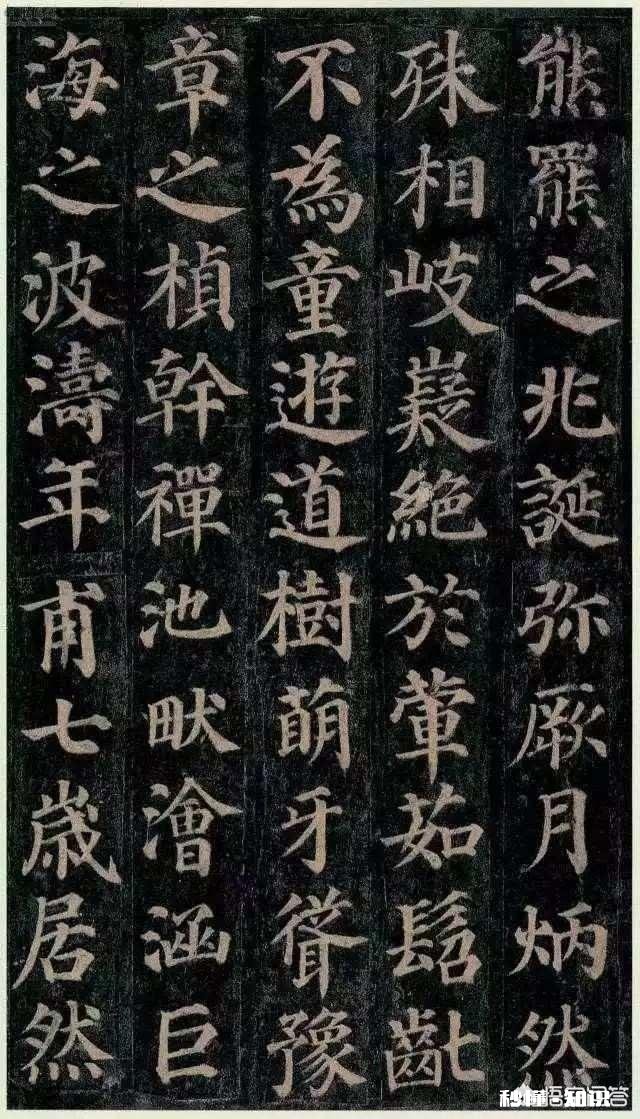 熊羆之兆誕弥厥月炳然
殊相岐嶷絕於葷茹髫齔
不為童遊道樹萌牙聳豫
章之楨幹禪池畎澮涵巨
海之波濤年甫七歲居然
悟空问答